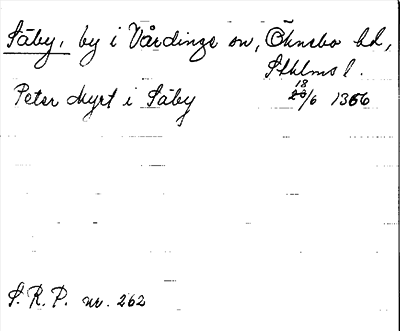 Säby, by i Vårdinge sn, Öknebo hd,
Sthlms l.
Peter Myrt i Säby 18/6 1356
S. R. P. nr. 262